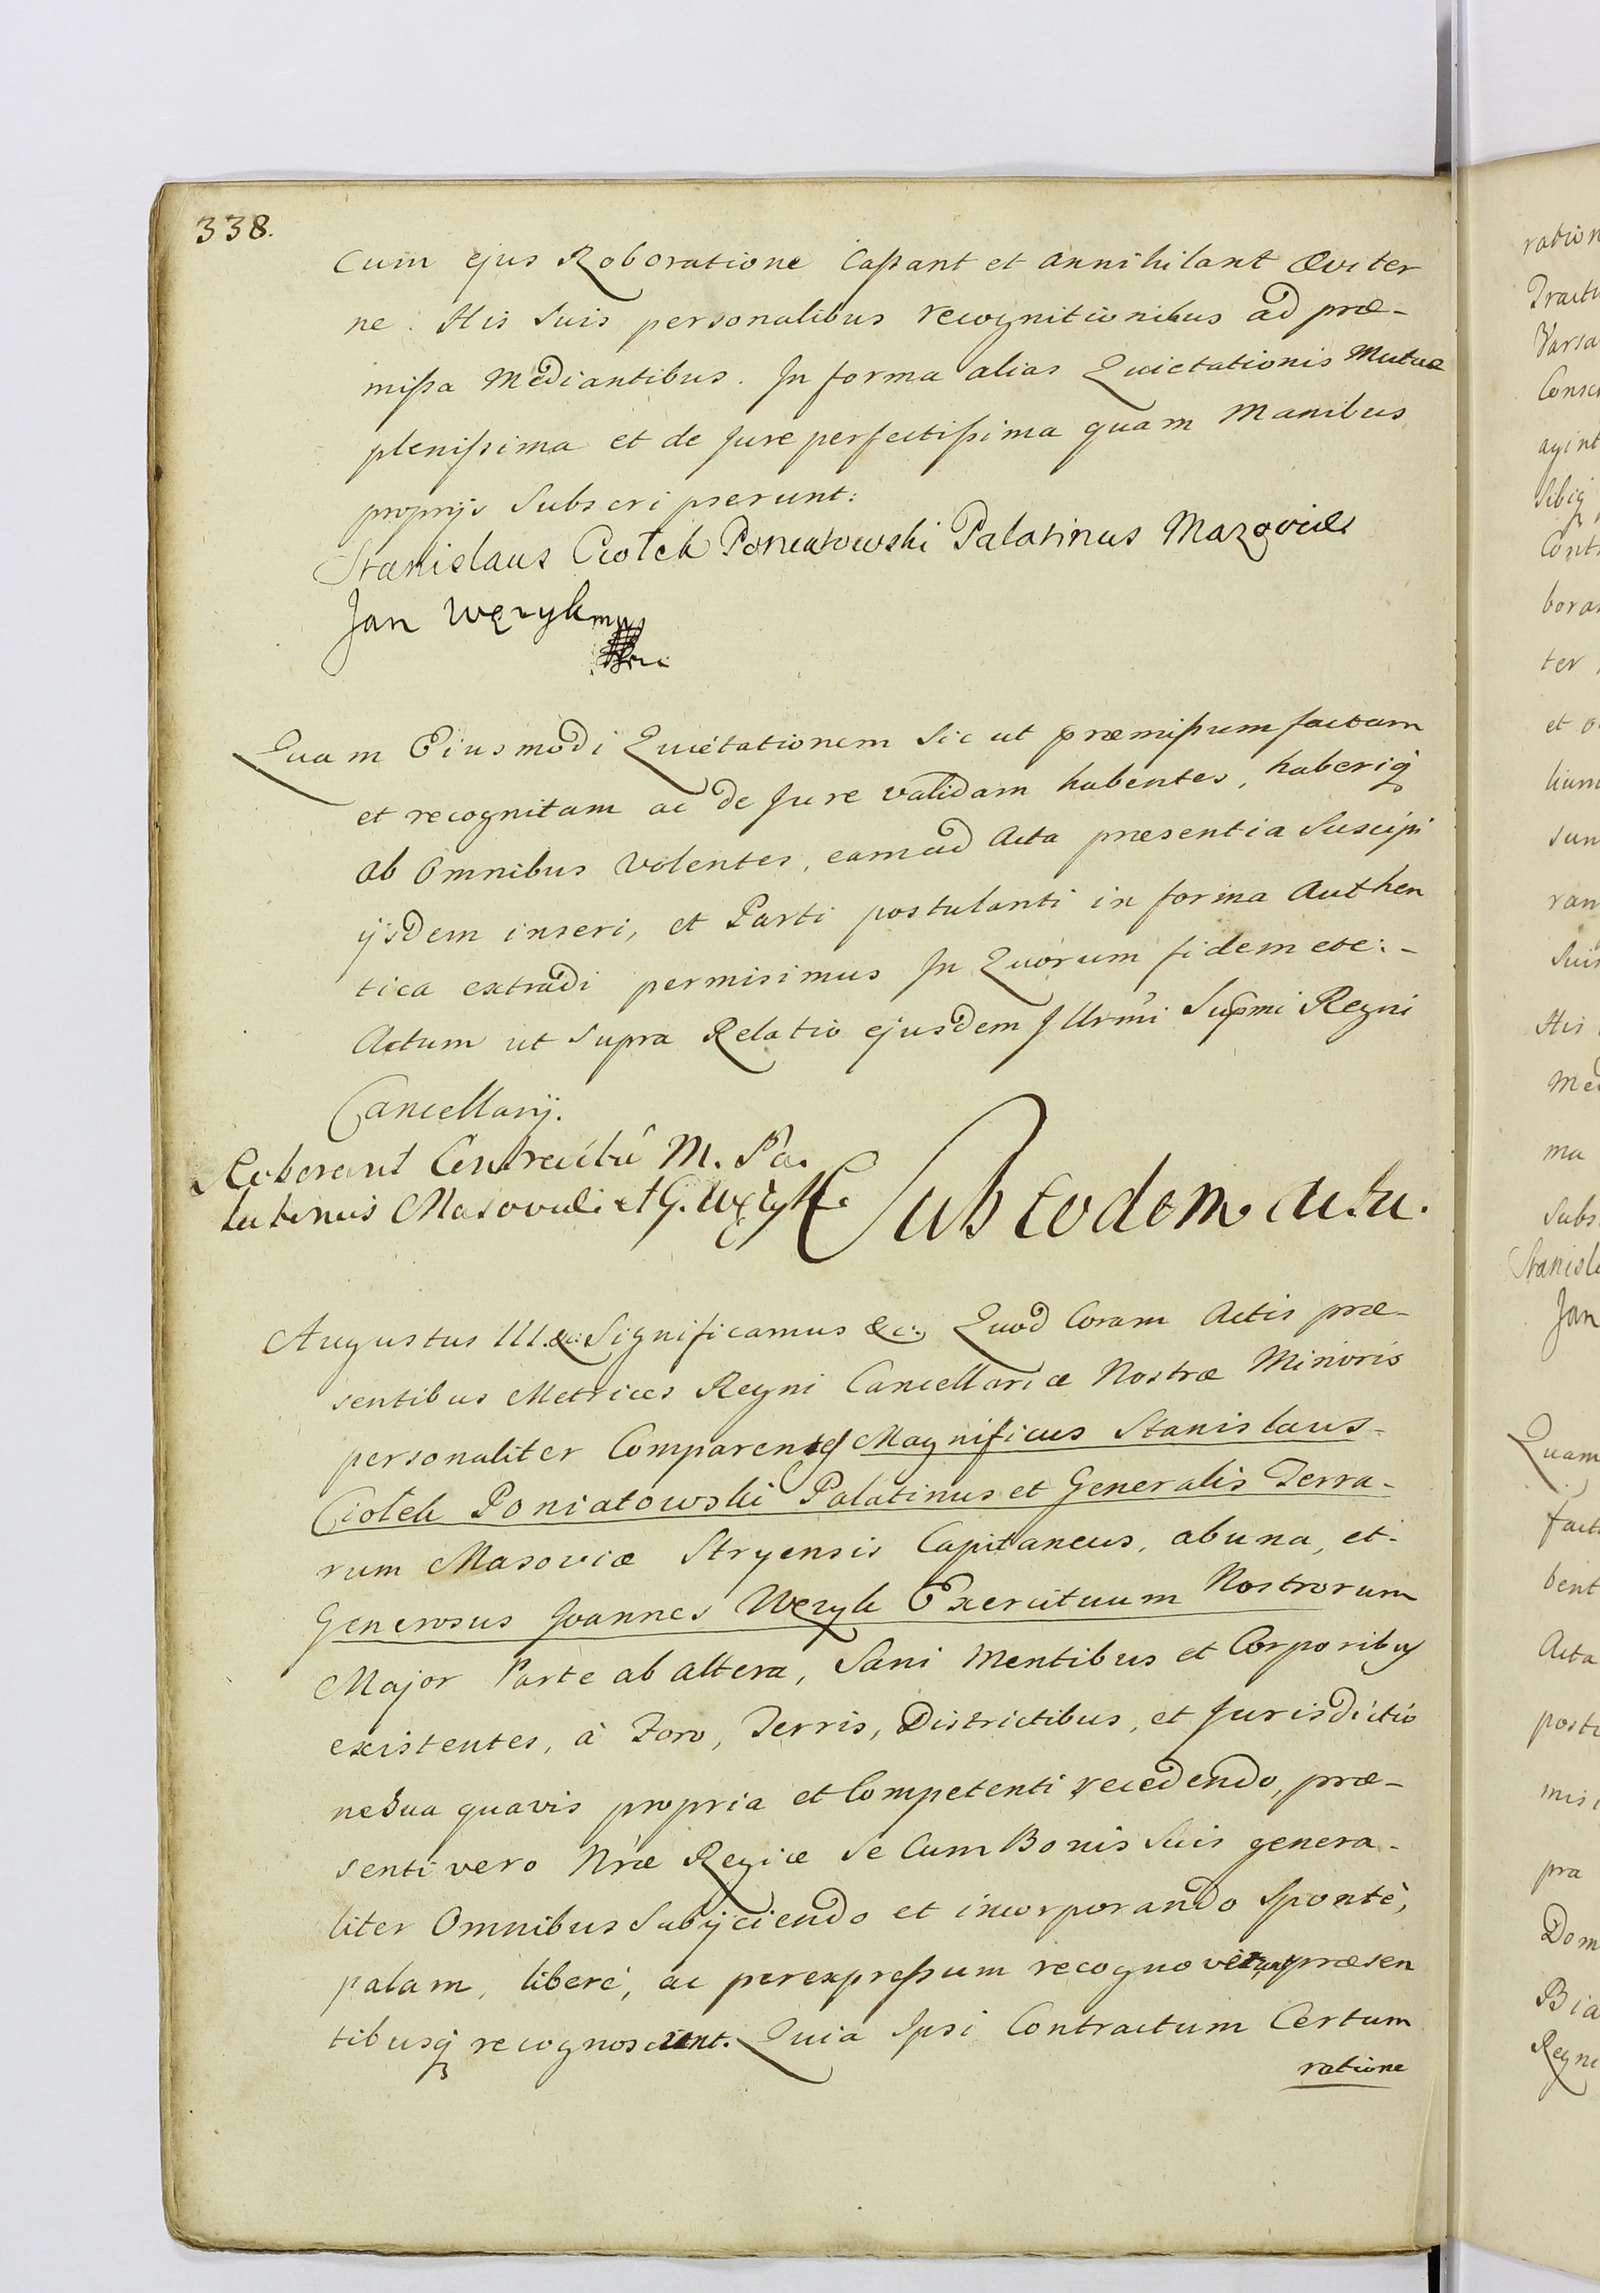 338.
Cum ejus Roboratione Cassant et annihilant æviter
ne. His Suis personalibus recognitionibus ad præ-
missa Mediantibus. In forma alias Quietationis Mutuæ
plenissima et de Jure perfectissima quam Manibus
proprijs Subscripserunt:
Stanislaus Ciołek Poniatowski Palatinus Mazoviæ
Jan Węzyk mp
Quam Eiusmodi Quietationem Sic ut præmissum factam
et recognitam ac de Jure validam habentes, haberiq
ab Omnibus Volentes, eam ad Acta præsentia Suscipi
ijsdem inseri, et Parti postulanti in forma Authen
tica extradi permisimus In Quorum fidem etc: -
Actum ut Supra Relatio ejusdem Illrmi Supmi Regni
Cancellarij.
Roborant Contractû M. Pa.
latinus Masoviæ et G. Węzyk
Sub eodem actu.
Augustus III. &c: Significamus &c: Quod Coram Actis præ-
sentibus Metrices Regni Cancellariæ Nostræ Minoris
personaliter Comparentes Magnificus Stanislaus -
Ciołek Poniatowski Palatinus et Generalis Terra-
rum Masoviæ Stryensis Capitaneus, ab una, et -
Generosus Joannes Węzyk Exercituum Nostrorum
Major Parte ab altera, Sani Mentibus et Corporibus
existentes, à Foro, Terris, Districtibus, et Jurisdictio
ne Sua quavis propria et Competenti recedendo, præ-
senti vero Nræ Regiæ Se Cum Bonis Suis genera-
liter Omnibus Subijciendo et incorporando Spontè,
palam, liberè, ac per expressum recognoverunt præsen
tibusq recognoscunt. Quia Ipsi Contractum Certum
ratione
ration
Tractu
Varsa
ayint
Sibiq
Cont
bora
ter
et
lium
sun
ran
Suis
His
Med
ma
Subs
Stanisl
Jan
Quam
fact
bent
Acta
postu
misi
pra
Dom
Bia
Regni